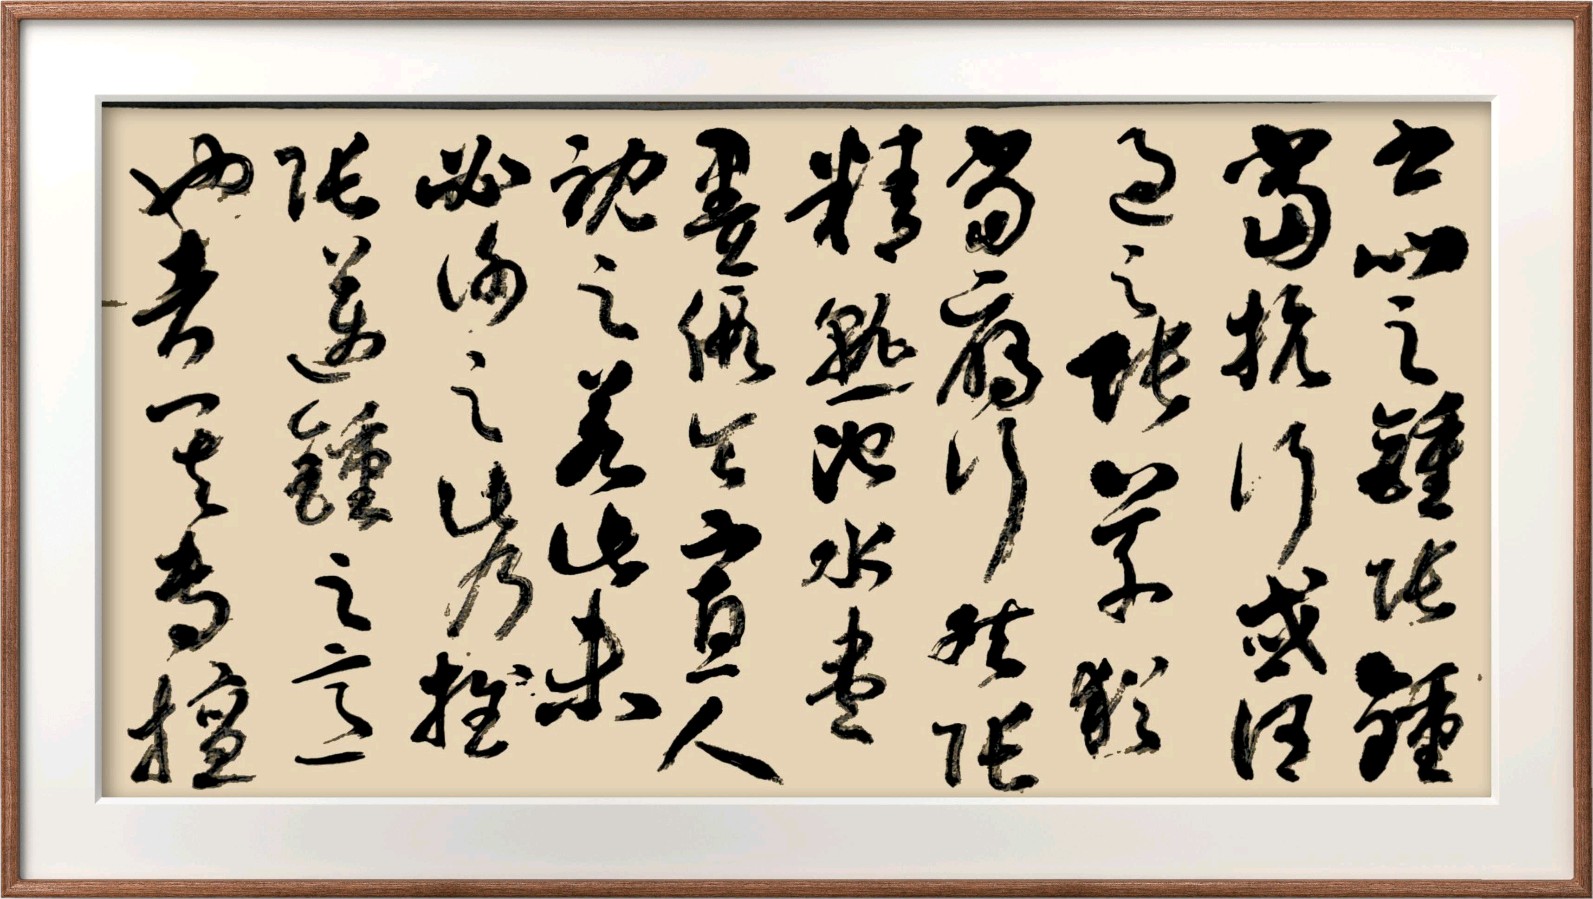 書比之鍾張鍾
當抗行或謂
過之張草猶
當鴈行然張
精熟池水盡
墨假令寡人
耽之若此未
必謝之此乃推
張邁鍾之意
也考其專擅